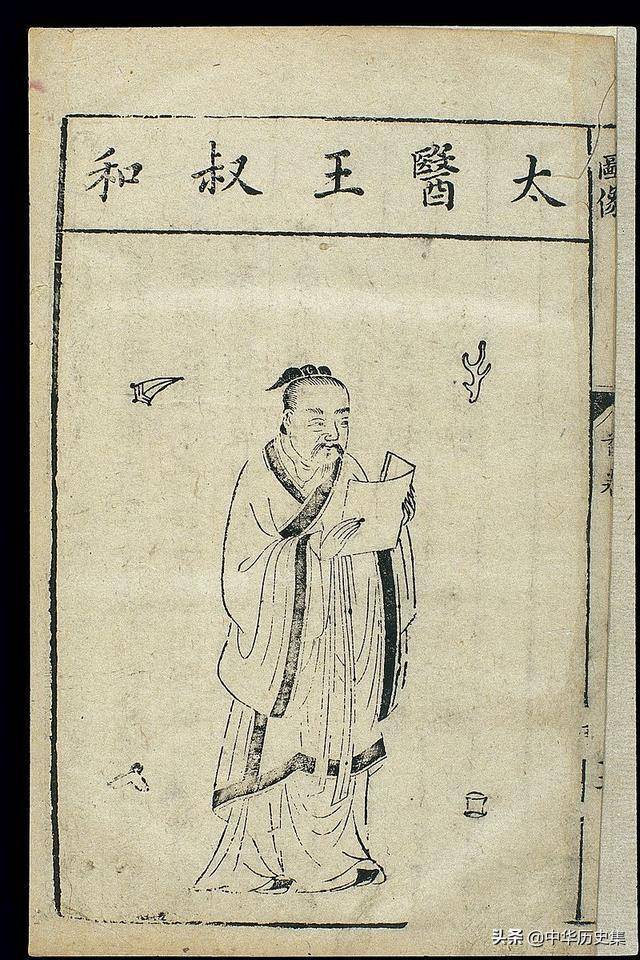 太醫王叔和
圖像
头条 @中华历史集